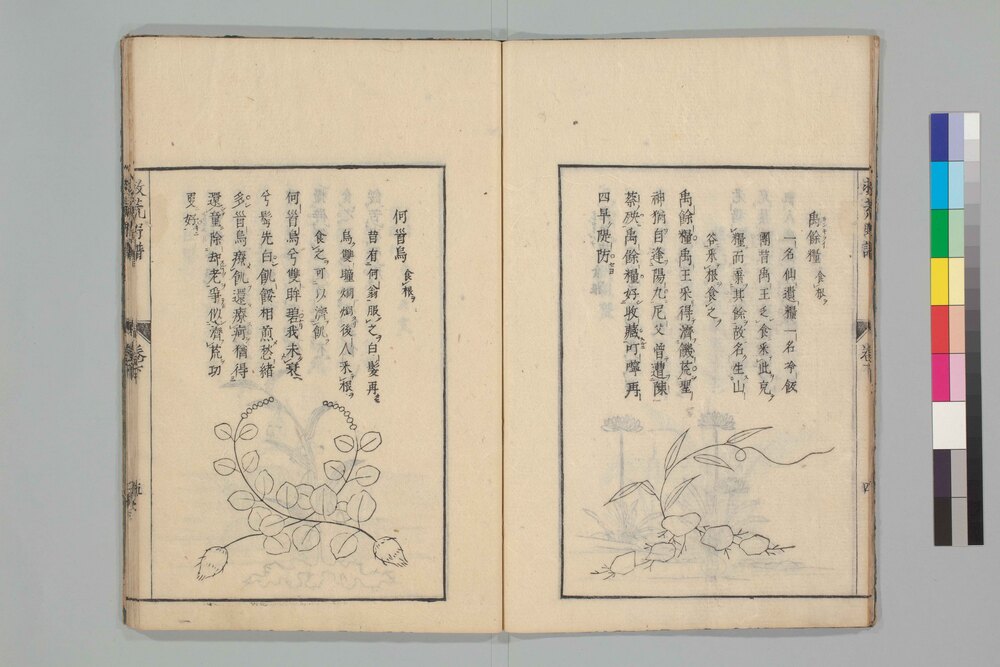 禹餘糧 食根
一名仙遺糧一名冷飯
團昔禹王乏食采此充
糧而棄其餘故名生山
谷采根食之
禹餘糧禹王采得濟饑荒聖
神猶自逢陽九尼父曾遭陳
蔡殃禹餘糧好收藏叮嚀再
四早隄防
何首烏 食根
昔有何翁服之白髮再
烏雙瞳炯炯後人采根
食之可以濟飢
何首烏兮雙眸碧我未衰
兮髩先白飢餒相煎愁緒
多首烏療飢還療痾猶得
還童除却老爭似濟荒功
更好